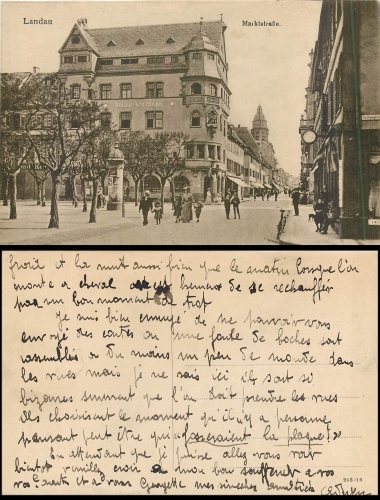 Landau
Marktstraße.
froid et la nuit aussi bien que le matin lorsque l'on
monte à cheval est heureux de se rechauffer
par un bon moment de trot
Je suis bien ennuyé de ne pouvoir vous
envoyé des cartes ou une foule de boches soit
rassemblés ou du moins un peu de monde dans
les rues mais je ne sais ici ils sont si
bizarres surement que l'on doit prendre les vues
des choisirent le moment qu'il y a personne
pensant peut être qui "
la plaque!"
En attendant que je puisse allez vous voir
bientôt veuillez croire à mon bon souvenir a vos
parents et a vous Georgette mes sincères amitiés